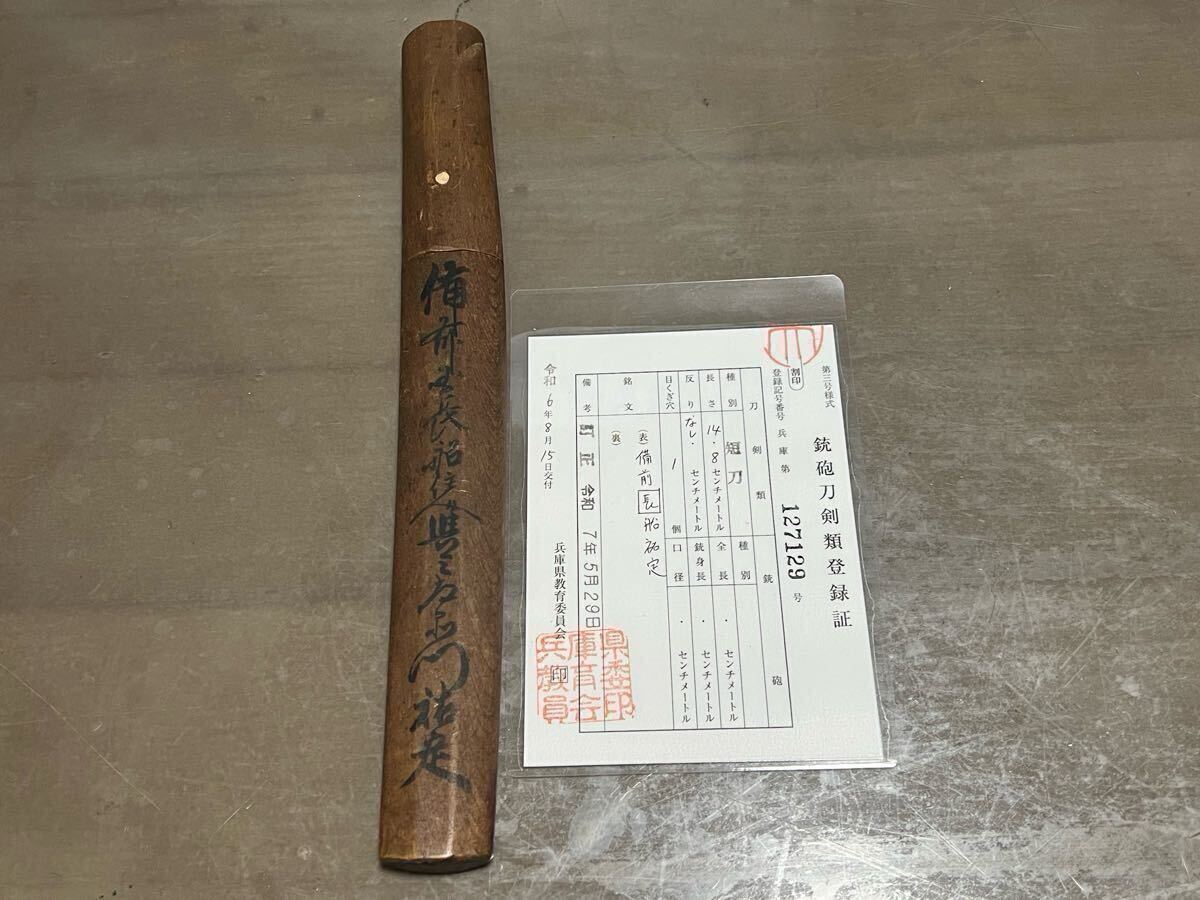 備前国長船住人與三左衛門祐定
銃砲刀剣類登録証
第三号様式
割印
登録記号番号 兵庫第 127129 号
刀剣類
銃砲
種別 短刀
種別
長さ 14.8 センチメートル
全長 . センチメートル
反り なし. センチメートル
銃身長 . センチメートル
目くぎ穴 1 個
口径 . センチメートル
銘文 (表) 備前長船祐定
(裏)
備考 訂正 令和7年5月29日
令和6年8月15日交付
兵庫県教育委員会 印